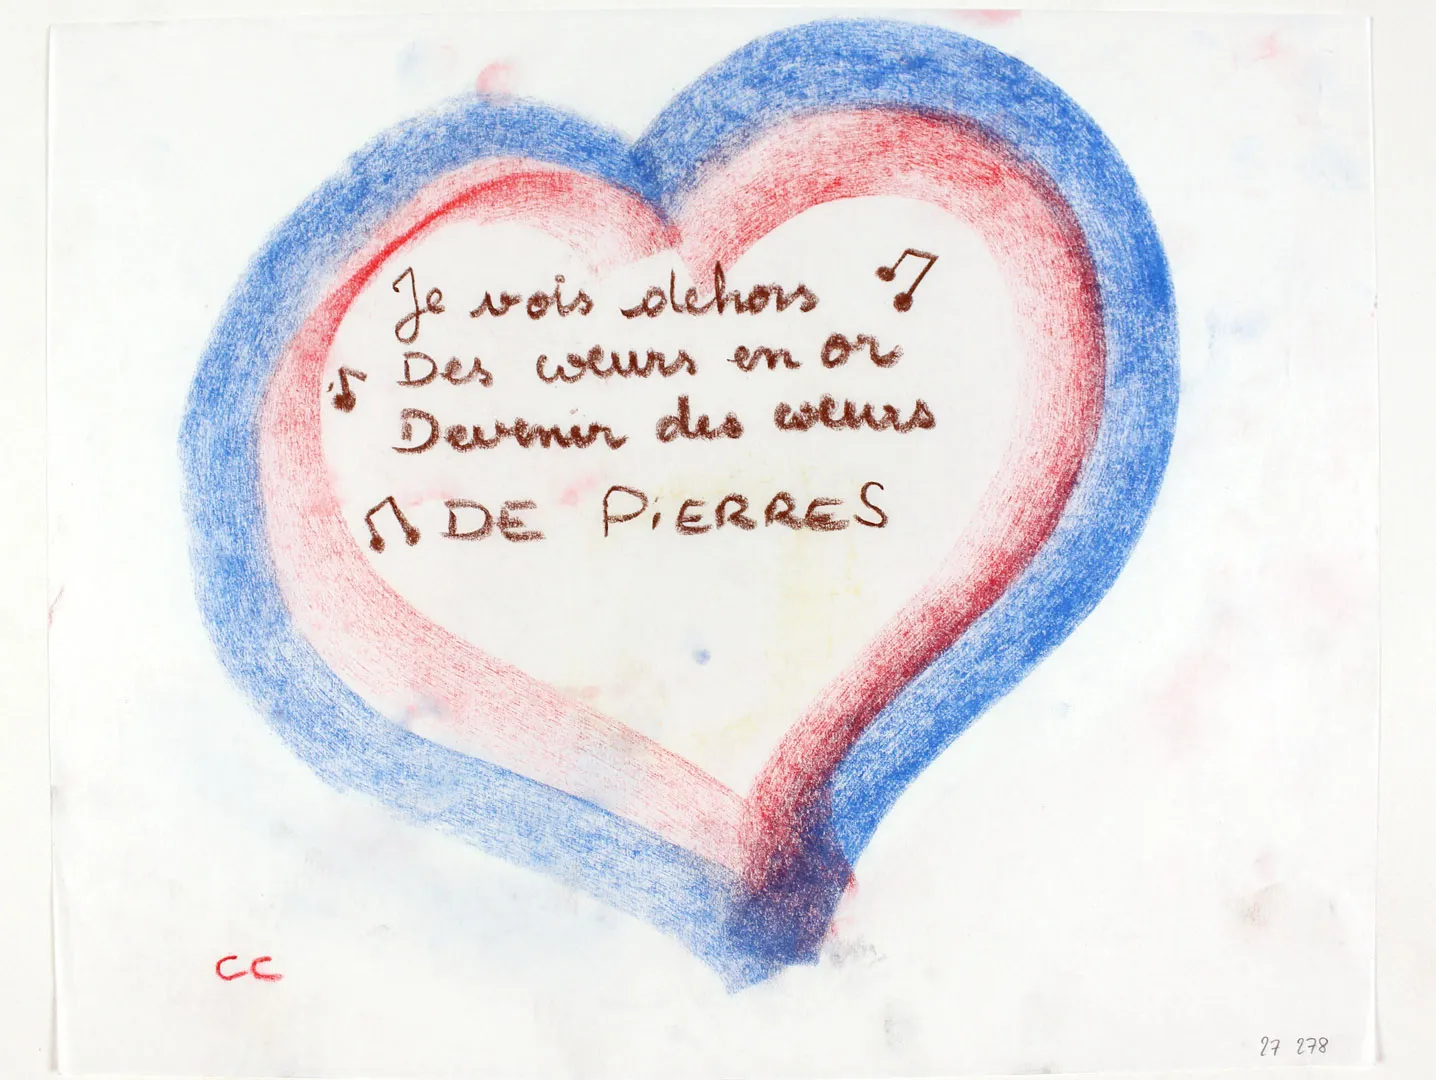 Je vois dehors
Des cœurs en or
Devenir des cœurs
DE PiERRES
CC
27 278